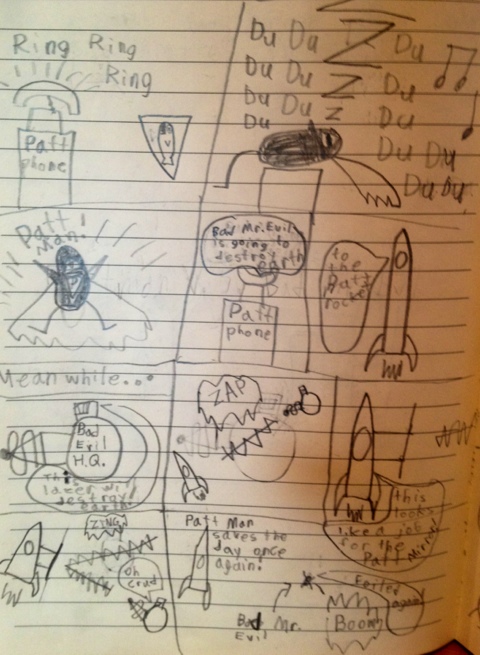 Ring Ring
Ring
Patt
phone
Du Du Z Du
Du Du Z Du
Du Du Z Du
Du Du Du
Du Du
Patt
Man!
Bad Mr. Evil
is going to
destroy
earth
Patt
phone
to
the
Patt
rocket
Mean while...
Bad
Evil
H.Q.
This
lazer will
destroy
earth!
ZAP
this
looks
like a job
for the
Patt Mirror
ZING
Oh
crud
Patt Man
saves the
day once
again!
Bad Mr.
Evil
Boom
Exited
again!